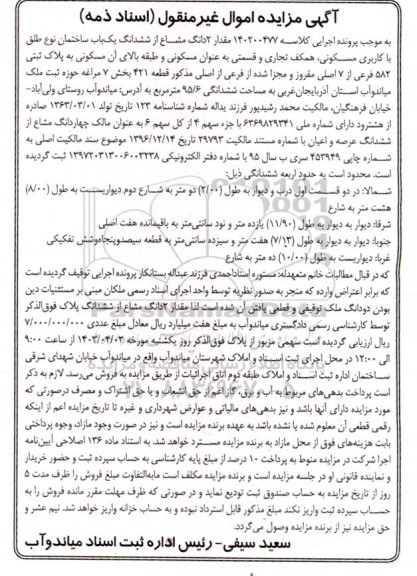 آگهی مزایده اموال غیرمنقول (اسناد ذمه)
به موجب پرونده اجرایی کلاسه ۱۴۰۲۰۰۴۷۷ مقدار ۲دانگ مشاع از ششدانگ یک‌باب ساختمان نوع طلق
با کاربری مسکونی، همکف تجاری و قسمتی به عنوان مسکونی و طبقه بالای آن مسکونی به پلاک ثبتی
۵۸۲ فرعی از ۷ اصلی مفروز و مجزا شده از فرعی از اصلی مذکور قطعه ۴۲۱ بخش ۷ مراغه حوزه ثبت ملک
میاندوآب استان آذربایجان‌غربی به مساحت ششدانگی ۹۵/۶ مترمربع به آدرس: میاندوآب روستای ولی‌آباد-
خیابان فرهنگیان، مالکیت محمد رشیدپور فرزند یداله شماره شناسنامه ۱۲۳ تاریخ تولد ۱۳۶۳/۰۳/۰۱ صادره
از هشترود دارای شماره ملی ۶۳۶۹۸۲۹۳۴۱ با جزء سهم ۴ از کل سهم ۶ به عنوان مالک چهاردانگ مشاع از
ششدانگ عرصه و اعیان با شماره مستند مالکیت ۲۹۷۹۳ تاریخ ۱۳۹۶/۱۲/۱۴ موضوع سند مالکیت اصلی به
شماره چاپی ۴۵۳۹۴۹ سری ب سال ۹۵ با شماره دفتر الکترونیکی ۱۳۹۷۲۰۳۱۳۰۰۶۰۰۳۲۳۸ ثبت گردیده
است. محدود است به حدود اربعه ششدانگی ذیل:
شمالا: در دو قسمت اول درب و دیوار به طول (۲/۰۰) دو متر به شارع دوم دیواریست به طول (۸/۰۰)
هشت متر به شارع
شرقا: دیوار به دیوار به طول (۱۱/۹۰) یازده متر و نود سانتی‌متر به باقیمانده هفت اصلی
جنوبا: دیوار به دیوار به طول (۷/۱۳) هفت متر و سیزده سانتی‌متر به قطعه سیصدوپنجاه‌وشش تفکیکی
غربا: دیواریست به طول (۱۰/۰۰) ده متر به شارع
که در قبال مطالبات خانم متعهدله: مستوره اسناداحمدی فرزند عبداله بستانکار پرونده اجرایی توقیف گردیده است
که برابر اعتراض وارده که منجر به صدور نظریه توسط واحد اجرای اسناد رسمی ملکان مبنی بر مستثنیات دین
بودن دودانگ ملک توقیفی و قطعی یافتن آن شده است لذا مقدار ۲دانگ مشاع از ششدانگ پلاک فوق‌الذکر
توسط کارشناس رسمی دادگستری میاندوآب به مبلغ هفت میلیارد ریال معادل مبلغ عددی ۷/۰۰۰/۰۰۰/۰۰۰
ریال ارزیابی گردیده است سهمی مزبور از پلاک فوق‌الذکر روز یکشنبه مورخه ۱۴۰۳/۰۴/۰۳ از ساعت ۹:۰۰
الی ۱۲:۰۰ در محل اجرای ثبت اسناد و املاک شهرستان میاندوآب واقع در میاندوآب خیابان شهدای شرقی
ساختمان اداره ثبت اسناد و املاک طبقه دوم اتاق اجرائیات از طریق مزایده به فروش می‌رسد. لازم به ذکر
است پرداخت بدهی‌های مربوط به آب و برق، گاز اعم از حق انشعاب و یا حق اشتراک و مصرف درصورتی که
مورد مزایده دارای آنها باشد و نیز بدهی‌های مالیاتی و عوارض شهرداری و غیره تا تاریخ مزایده اعم از اینکه
رقمی قطعی آن معلوم شده یا نشده باشد به عهده برنده مزایده است و نیز در صورت وجود مازاد، وجوه پرداختی
بابت هزینه‌های فوق از محل مازاد به برنده مزایده مسترد خواهد شد. به استناد ماده ۱۳۶ اصلاحی آیین‌نامه
اجرا شرکت در مزایده منوط به پرداخت ۱۰ درصد از مبلغ پایه کارشناسی به حساب سپرده ثبت و حضور خریدار
و نماینده قانونی او در جلسه مزایده است و برنده مزایده مکلف است مابه‌التفاوت مبلغ فروش را ظرف مدت ۵
روز از تاریخ مزایده به حساب صندوق ثبت تودیع نماید و در صورتی که ظرف مهلت مقرر مانده فروش را به
حساب سپرده ثبت واریز نکند مبلغ مذکور قابل استرداد نبوده و به حساب خزانه واریز خواهد شد. نیم عشر و
حق مزایده نیز از برنده مزایده وصول می‌گردد.
سعید سیفی- رئیس اداره ثبت اسناد میاندوآب